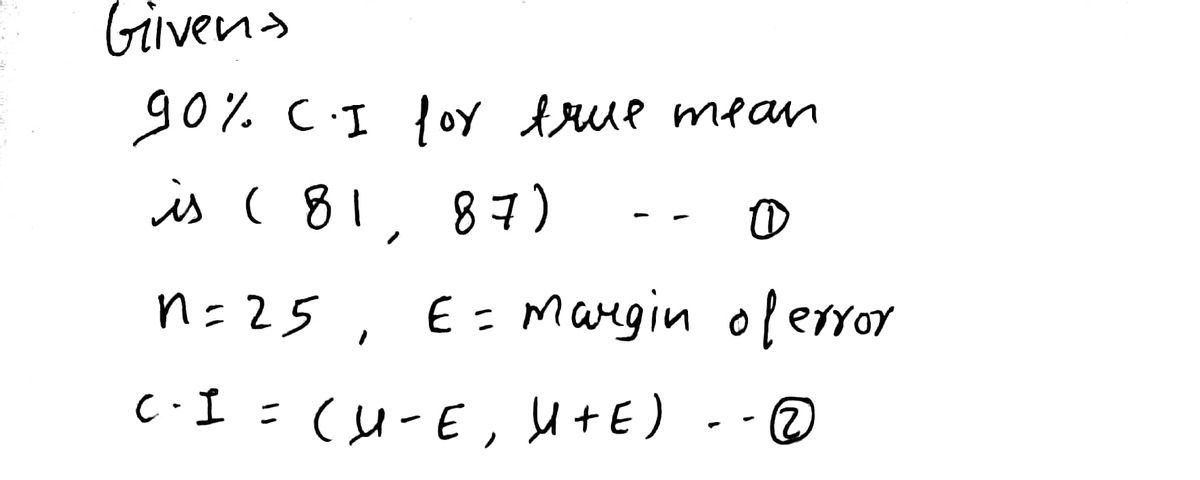 Given→
90% C.I for true mean
is ( 81, 87) -- ①
n=25, E = Margin of error
C.I = (μ-E, μ+E) --②